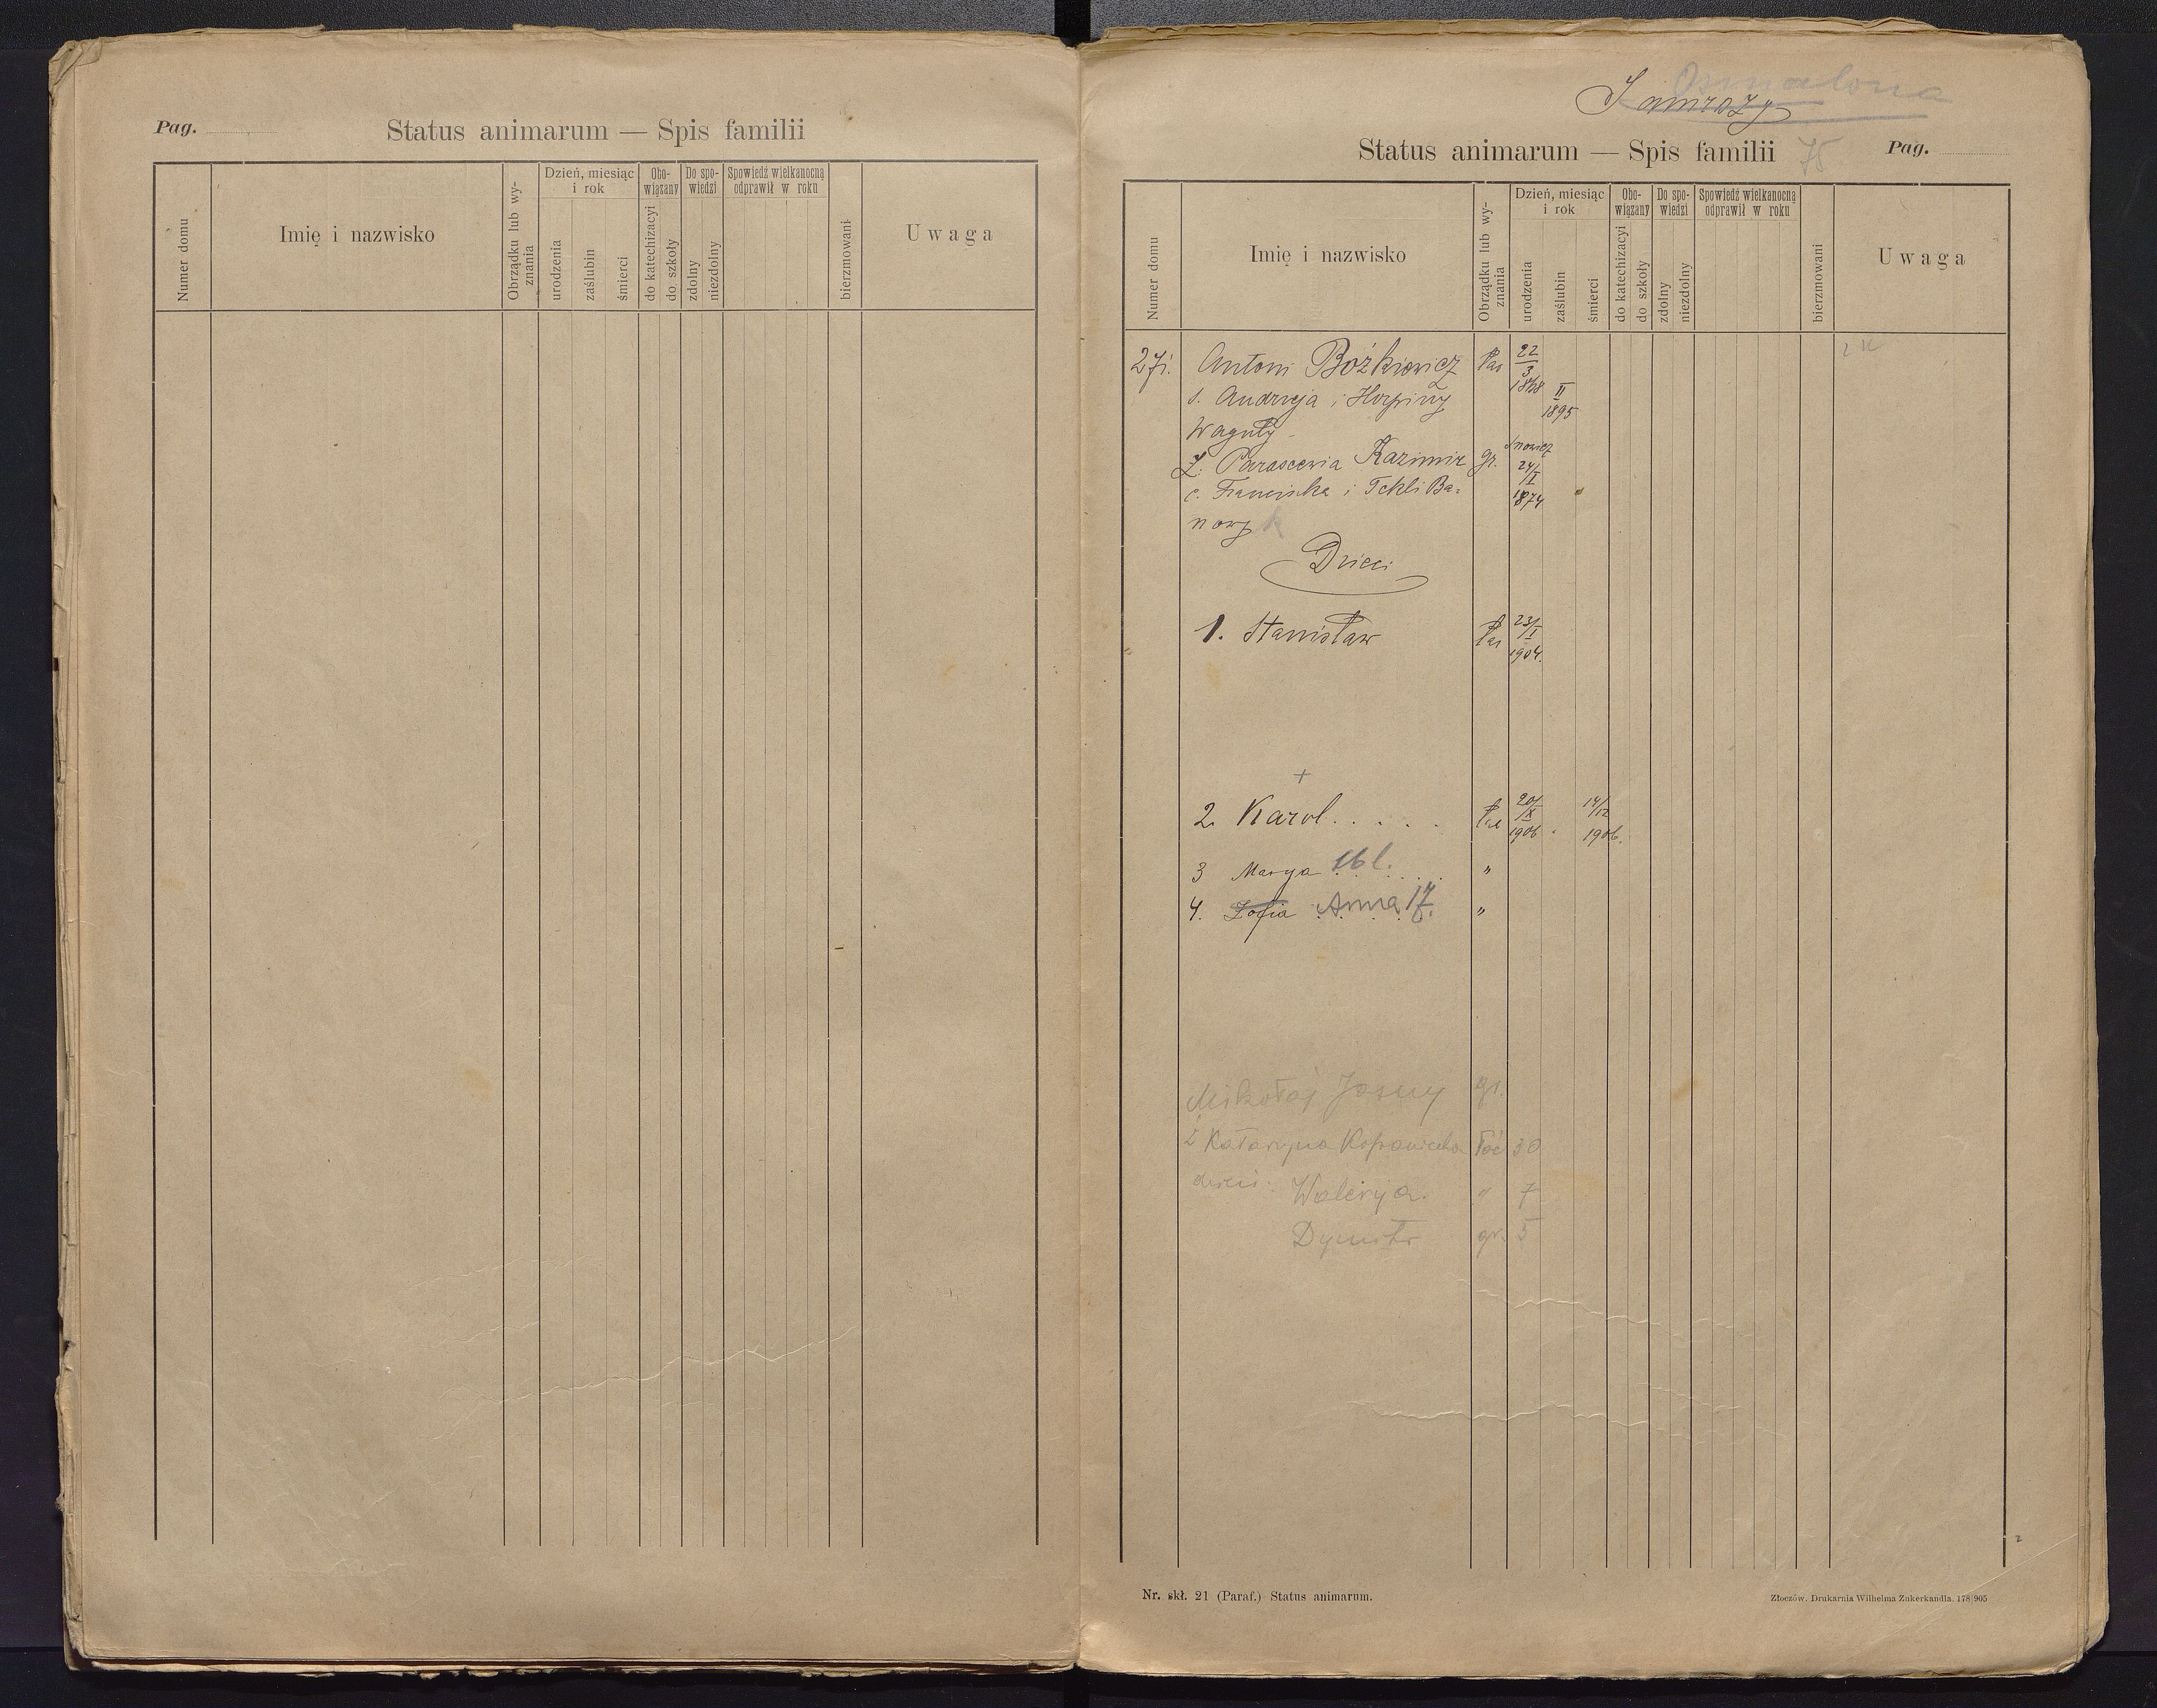 Pag.
Status animarum — Spis familii
Numer domu
Imię i nazwisko
Obrządku lub wy-
znania
Dzień, miesiąc
i rok
urodzenia
zaślubin
śmierci
Obo-
wiązany
do katechizacyi
do szkoły
Do spo-
wiedzi
zdolny
niezdolny
Spowiedź wielkanocną
odprawił w roku
bierzmowani
Uwaga
Jamrozy
Status animarum — Spis familii 75
Pag.
Numer domu
Imię i nazwisko
Obrządku lub wy-
znania
Dzień, miesiąc
i rok
urodzenia
zaślubin
śmierci
Obo-
wiązany
do katechizacyi
do szkoły
Do spo-
wiedzi
zdolny
niezdolny
Spowiedź wielkanocną
odprawił w roku
bierzmowani
Uwaga
Antoni Bożkiewicz łac 22/3 1868 II 1895
s. Andrzeja i Horpiny
Waguły
Ż. Parascewia Kazimir gr. 24/I 1874
c. Franciszka i Tekli Ba-
nowz
Dzieci
1. Stanisław łac 23/I 1904.
+
2. Karol . . . . . łac 20/X 1906. 14/12 1906.
3 Marya 16 l. "
4. Zofia Anna 17. "
Mikołaj Jasny gr.
ż Katarzyna łac 30
dzieci Walerya. " 7
Dymitr gr. 5
Nr. skł. 21 (Paraf.) Status animarum.
Złoczów. Drukarnia Wilhelma Zukerkandla. 178|905